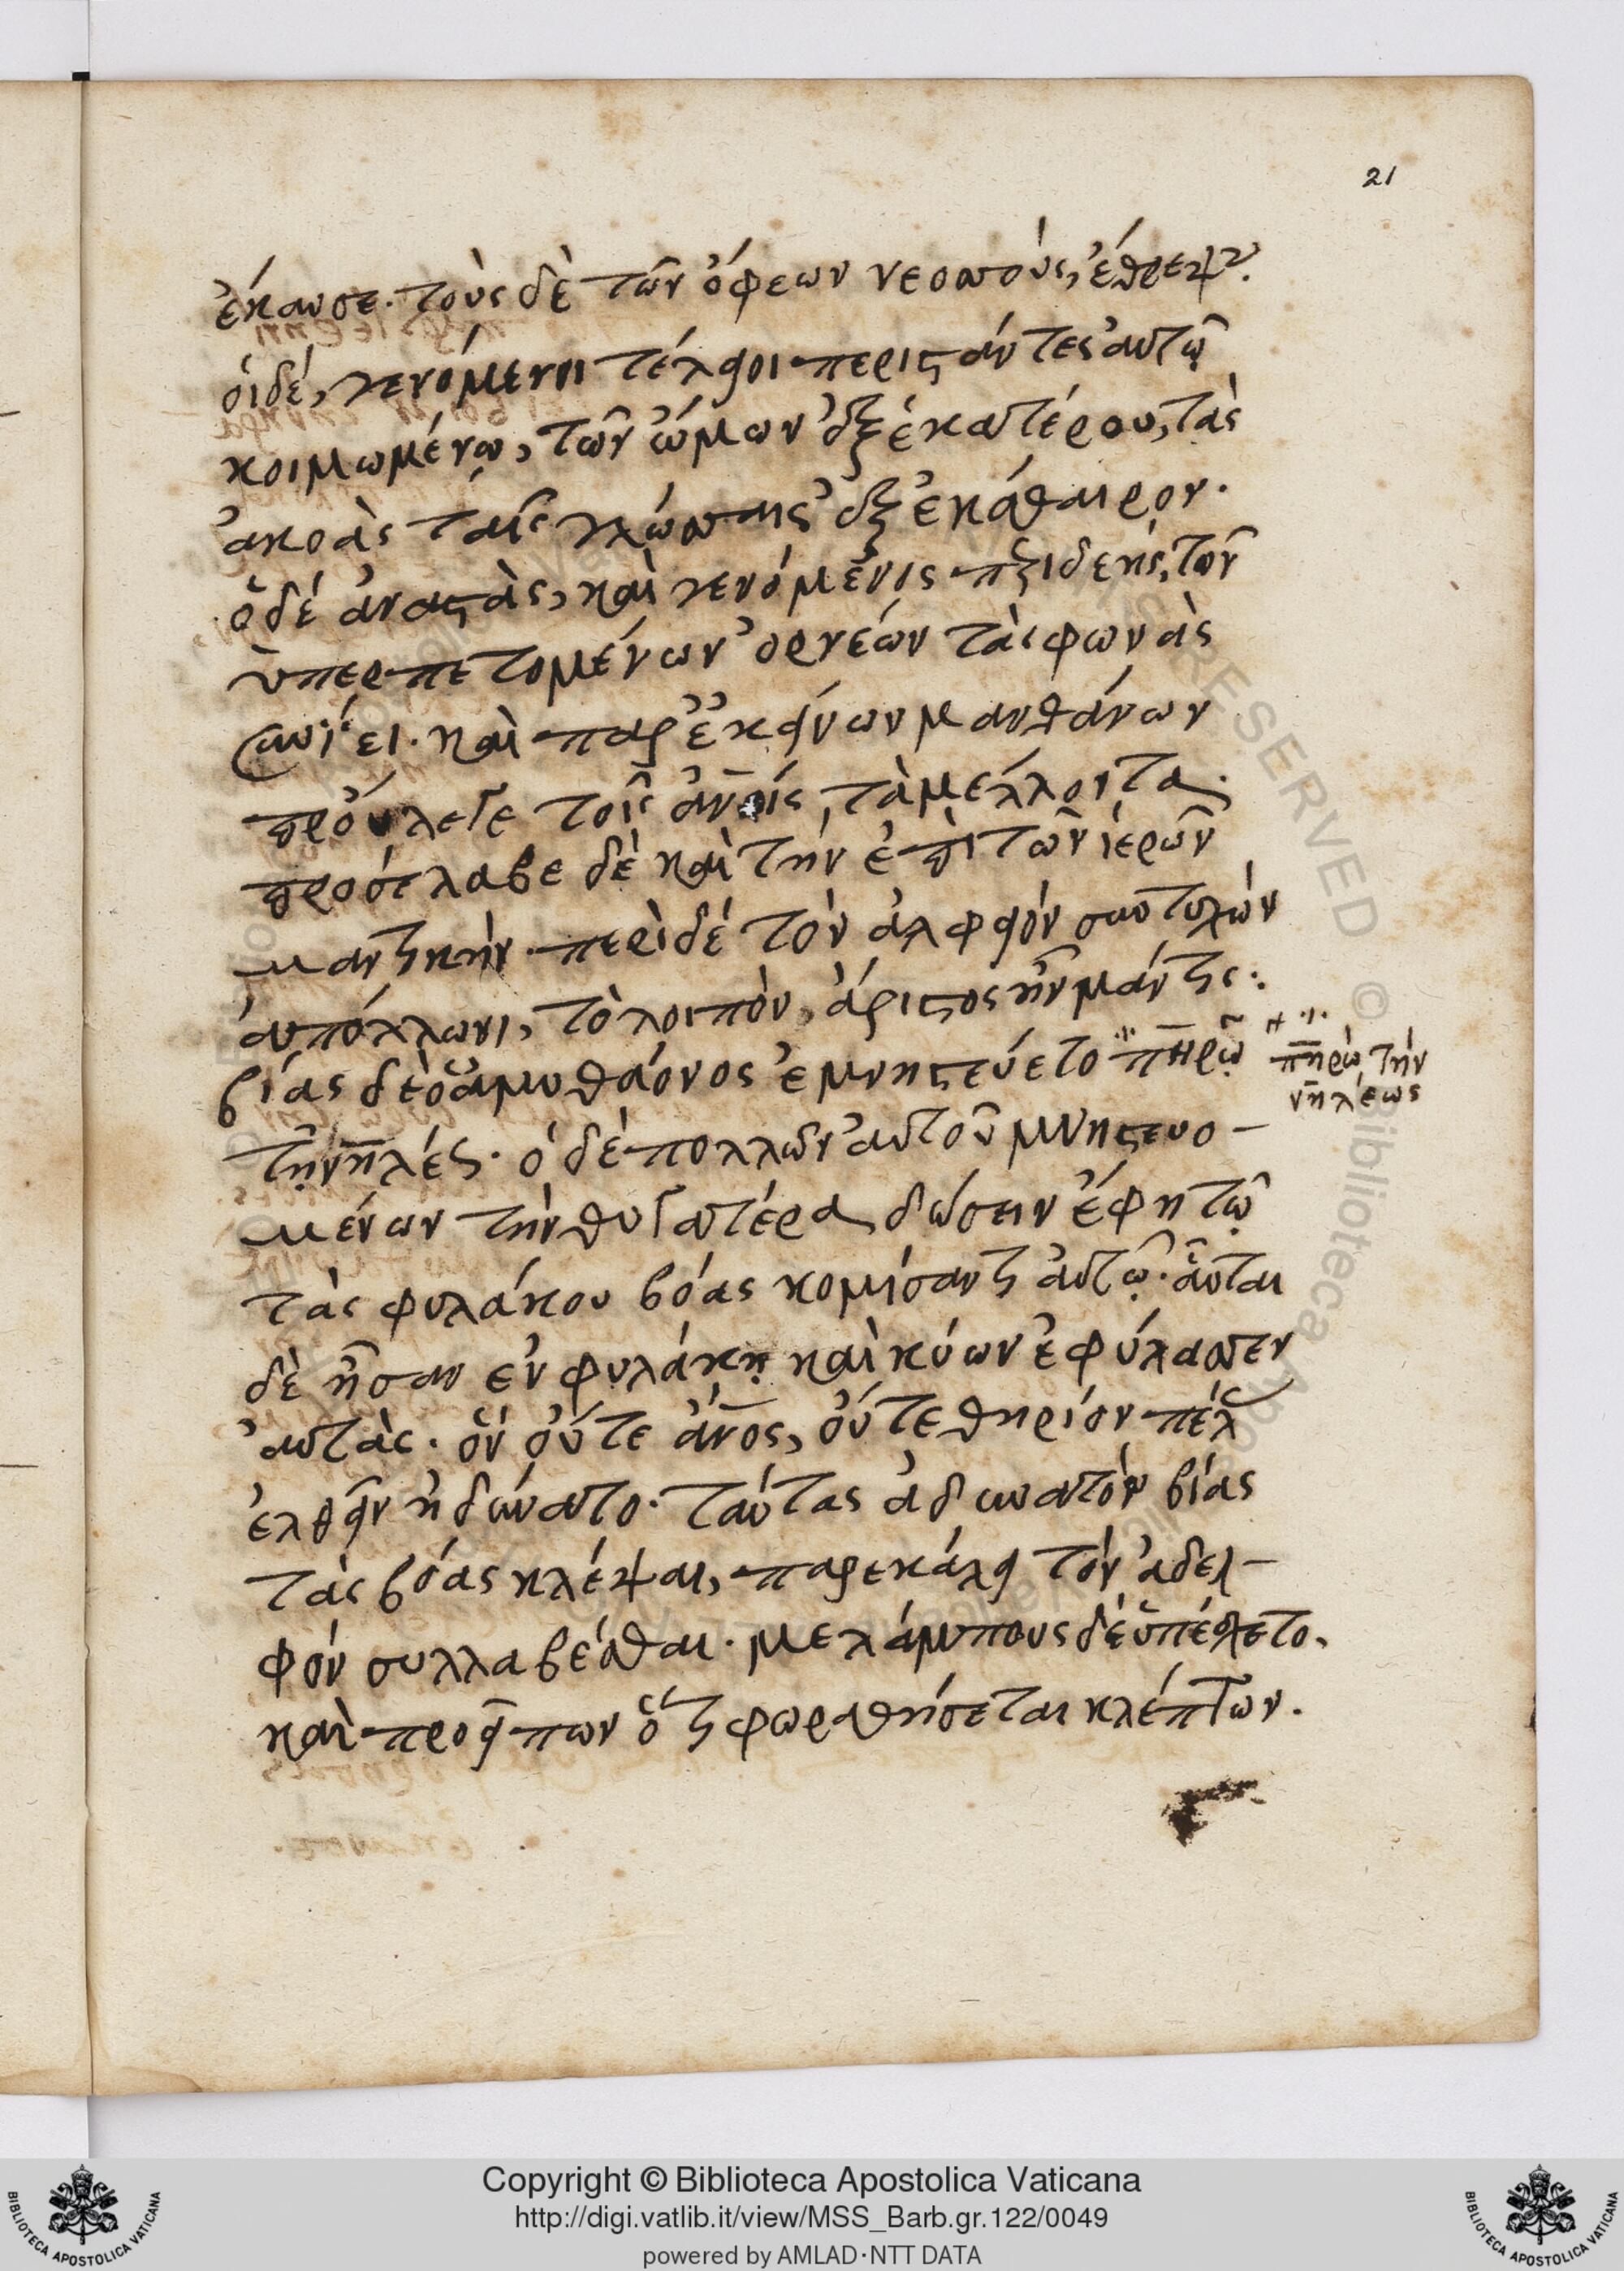 21
ἔκαυσε. τοὺς δὲ τῶν ὄφεων νεοσσοὺς, ἔθρεψεν.
οἱ δέ, γενόμενοι τέλειοι περιστάντες αὐτῷ
κοιμωμένῳ, τῶν ὤμων ἐξ ἑκατέρου, τὰς
ἀκοὰς ταῖς γλώσσαις ἐξεκάθαιρον.
ὁ δέ ἀναστὰς, καὶ γενόμενος περιδεής, τῶν
ὑπερπετομένων ὀρνέων τὰς φωνὰς
συνίει. καὶ παρ' ἐκείνων μανθάνων
προύλεγε τοῖς ἀνοις, τὰ μέλλοντα.
προσέλαβε δὲ καὶ τὴν ἐπὶ τῶν ἱερῶν
μαντικήν. περὶ δέ τὸν ἀλφειόν συντυχών
ἀπόλλωνι, τὸ λοιπὸν, ἄριστος ἦν μάντις.
βίας δὲ ὁ ἀμυθάονος ἐμνηστεύετο πηρῶ
πηρὼ τὴν
νηλέως
τὴν πλές. ὁ δὲ πολλῶν αὐτοῦ μνηστευο-
μένων τὴν θυγατέρα δώσειν ἔφη τῷ
τὰς φυλάκου βόας κομίσαντι αὐτῷ. αὗται
δὲ ἦσαν ἐν φυλάκῃ καὶ κύων ἐφύλασσεν
αὐτὰς. ὃν οὔτε ἄνος, οὔτε θηρίον πέλας
ἐλθεῖν ἠδύνατο. ταύτας ἀδυνατῶν βίας
τὰς βόας κλέψαι, παρεκάλει τὸν ἀδελ-
φόν συλλαβέσθαι. μελάμπους δὲ ὑπέσχετο.
καὶ προεῖπων ὅτι φωραθήσεται κλέπτων.
Copyright © Biblioteca Apostolica Vaticana
http://digi.vatlib.it/view/MSS_Barb.gr.122/0049
powered by AMLAD·NTT DATA